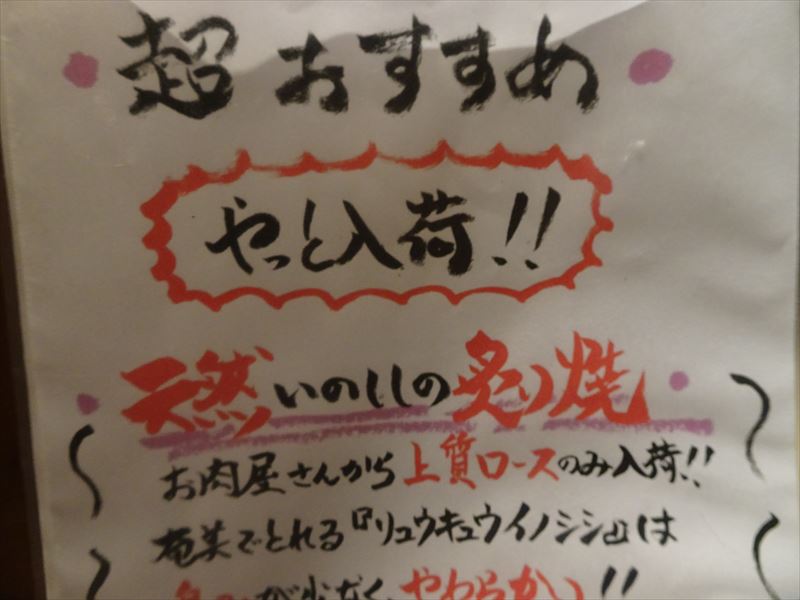 超おすすめ
やっと入荷!!
天然いのししの炙り焼
お肉屋さんから上質ロースのみ入荷!!
奄美でとれる『リュウキュウイノシシ』は
が少なく、やわらかい!!